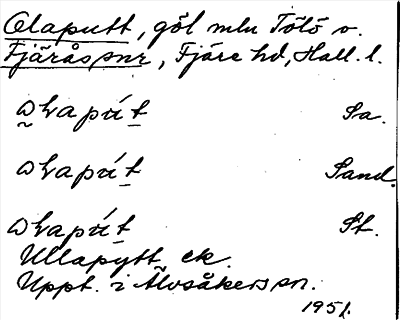 Olaputt, göl mln Tölö o.
Fjäråssnr, Fjäre hd, Hall. l.
ω̰ƚapút̠ Sa.
ωƚapút̠ Sand.
ωƚapút̠ St.
Ullapytt ek.
Uppt. i Älvsåkers sn.
1951.